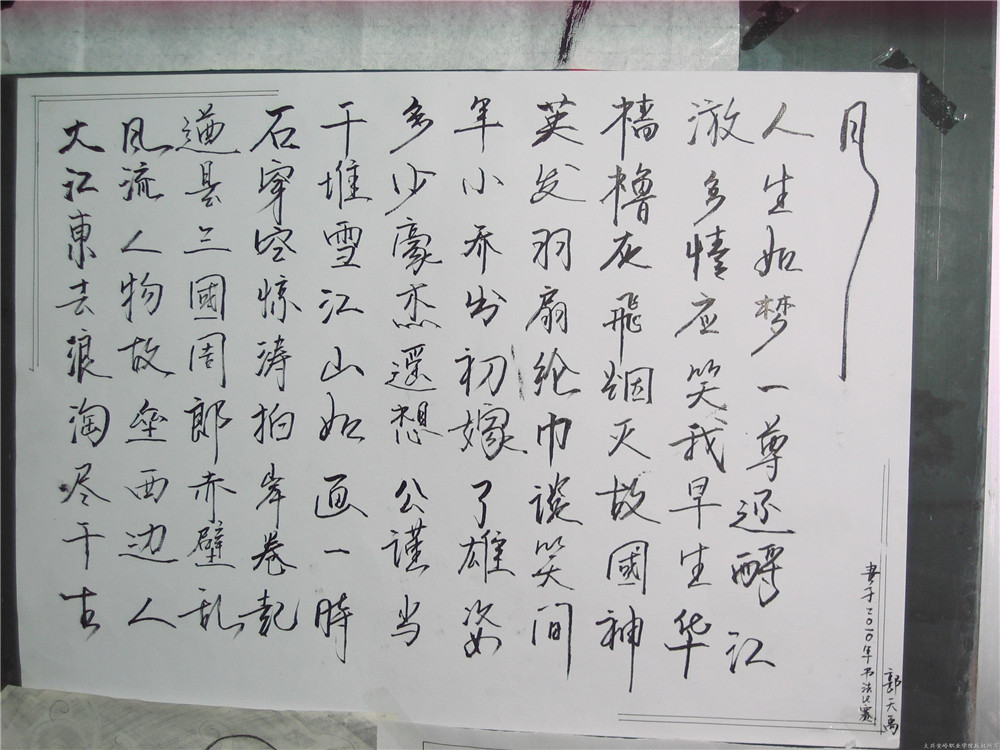 大江東去浪淘尽千古
风流人物故垒西边人
道是三國周郎赤壁乱
石穿空惊涛拍岸卷起
千堆雪江山如画一時
多少豪杰遥想公谨当
年小乔出初嫁了雄姿
英发羽扇纶巾谈笑间
樯橹灰飛烟灭故國神
游多情应笑我早生华
人生如梦一尊还酹江
月
书于二〇一〇年书法比赛
郭天禹